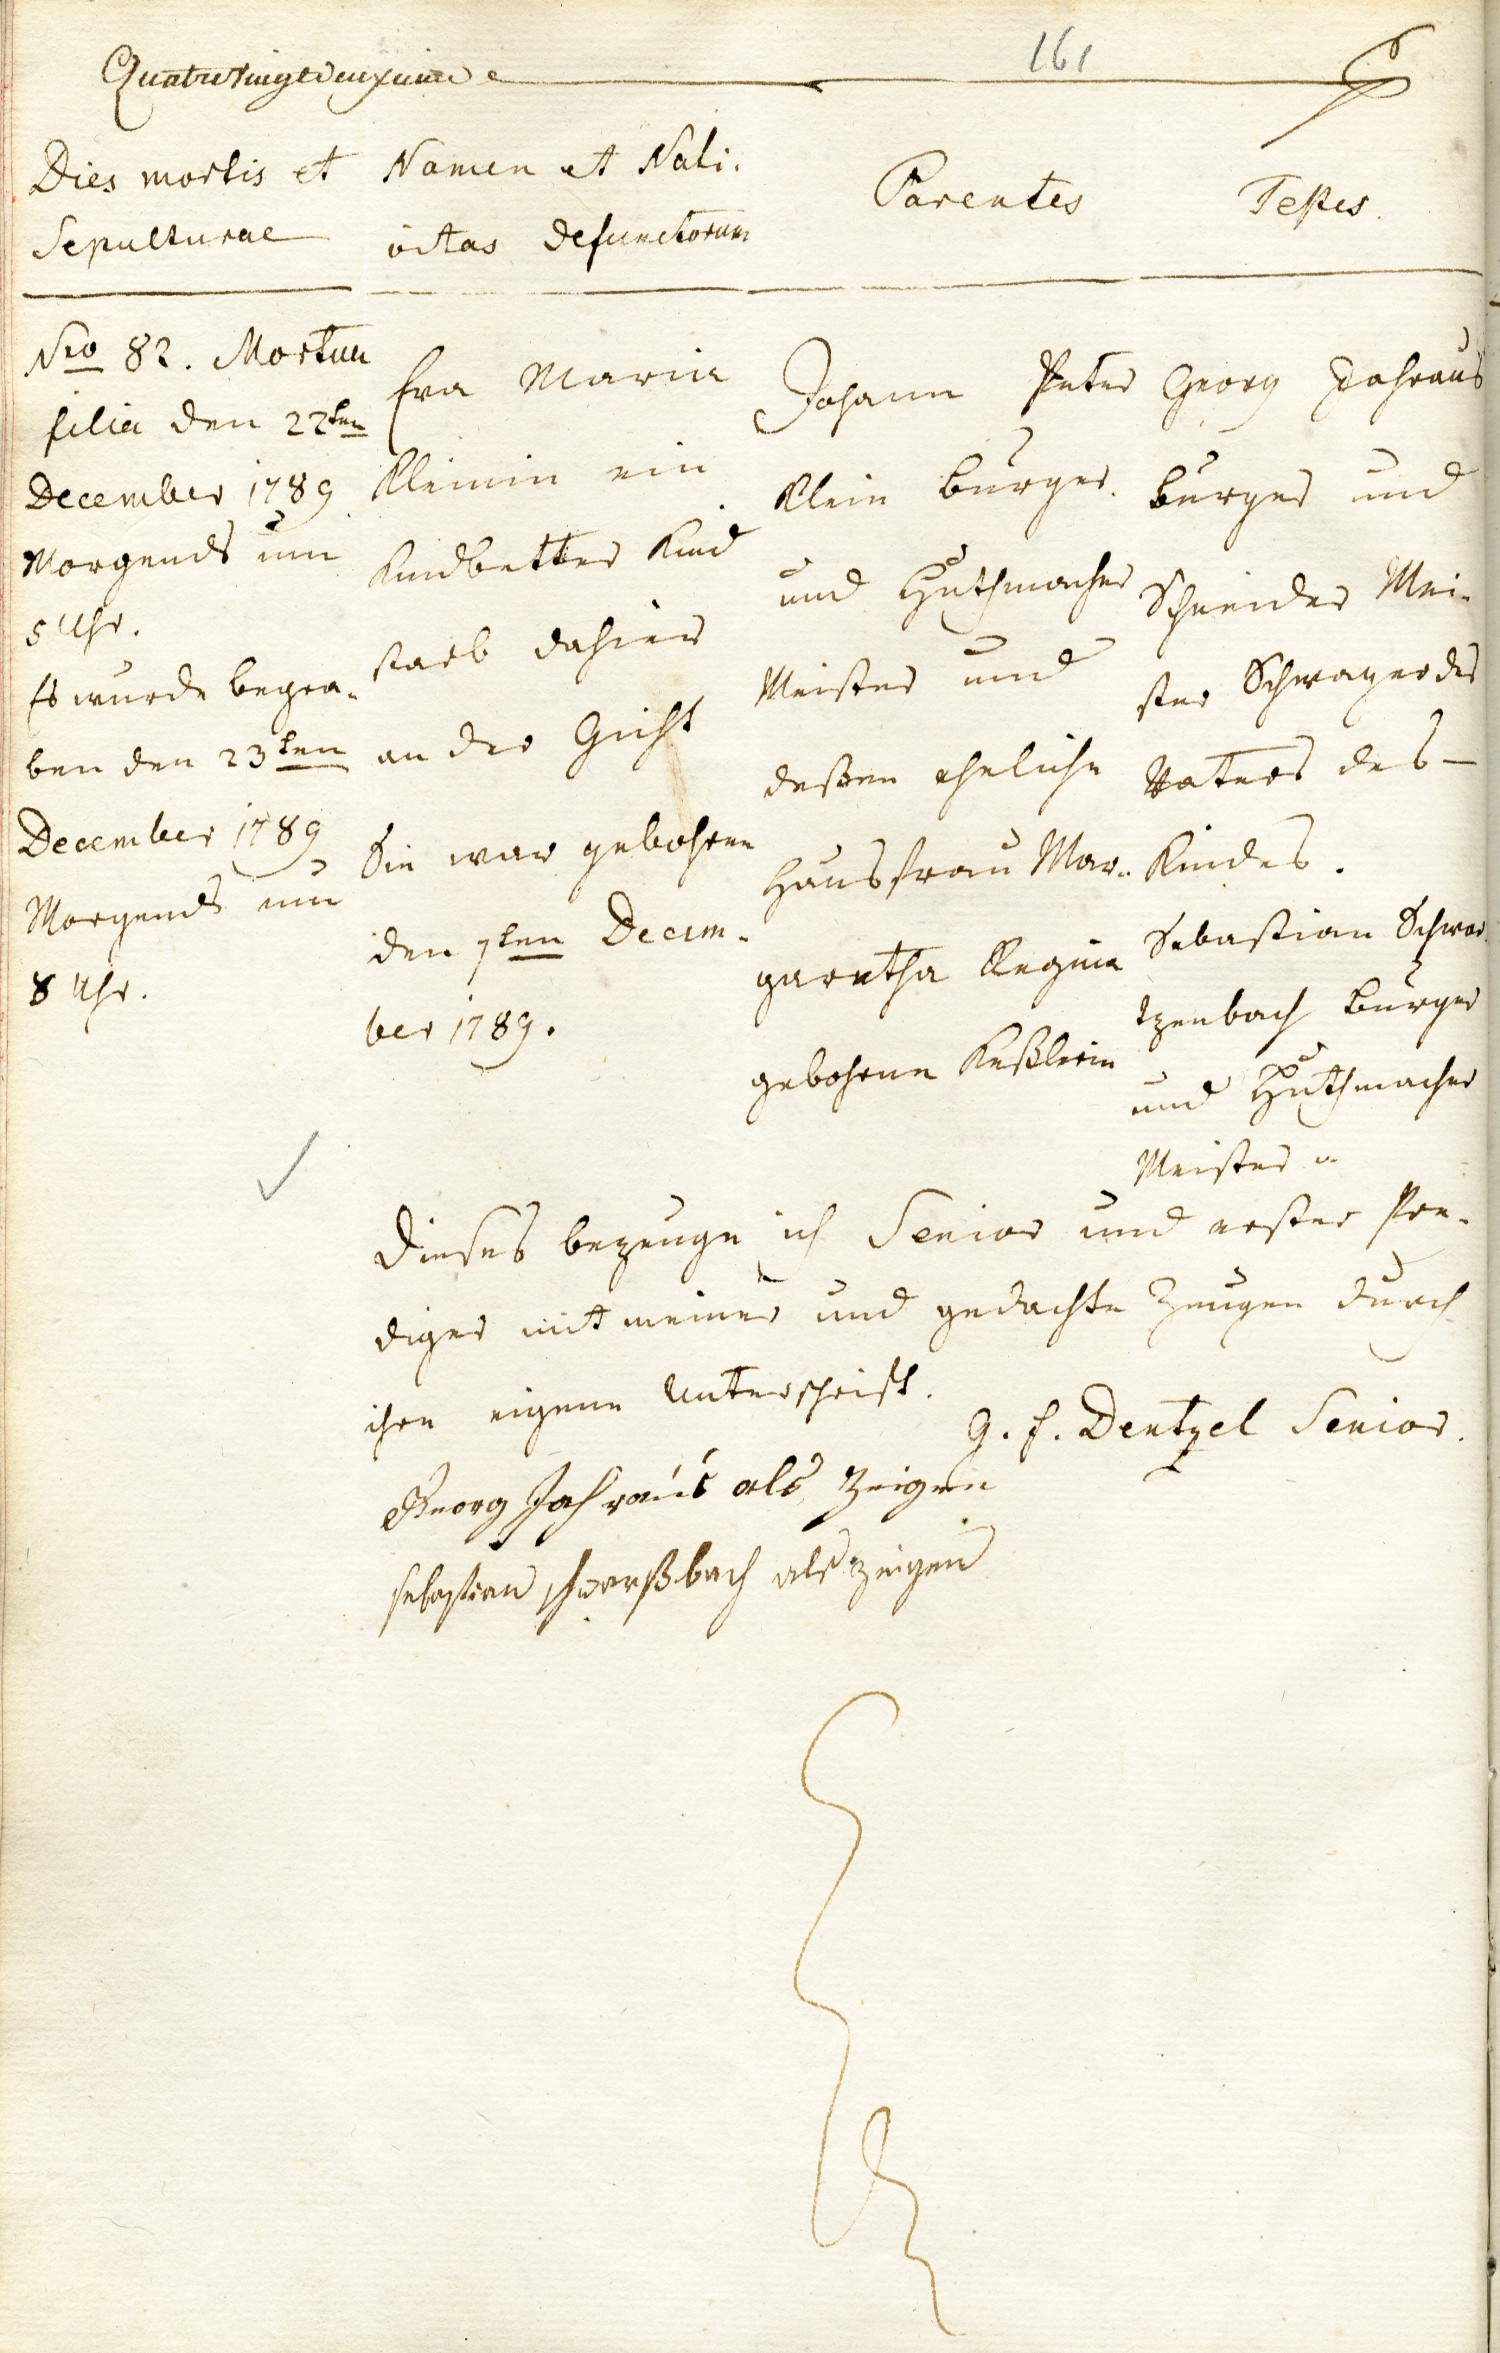 Quatrevingtdeuxieme
161
Dies mortis et
Sepulturae
Nomen et Nati-
vitas defunctorum
Parentes
Testes.
Nro 82. Mortua
filia den 22ten
December 1789
Morgends um
5 Uhr.
Es wurde begra-
ben den 23ten
December 1789
Morgends um
8 Uhr.
Eva Maria
Kleinin ein
Kindbetter Kind
starb dahier
an der Gicht
Sie war gebohren
den 7ten Decem-
ber 1789.
Johann Peter
Klein burger
und Huthmacher
Meister und
deßen eheliche
Hausfrau Mar-
garetha Regina
gebohrne Keßlerin
Georg Jahraus
burger und
Schneider Mei-
ster Schwager des
Vaters des
Kindes.
Sebastian Schwar-
tzenbach burger
und Huthmacher
Meister
Dieses bezeuge ich Senior und erster Pre-
diger mit meiner und gedachte Zeugen durch
ihre eigene Unterschrift.
G. F. Dentzel Senior.
Georg Jahraus als Zeigen
sebastian schwarßbach als zeigen